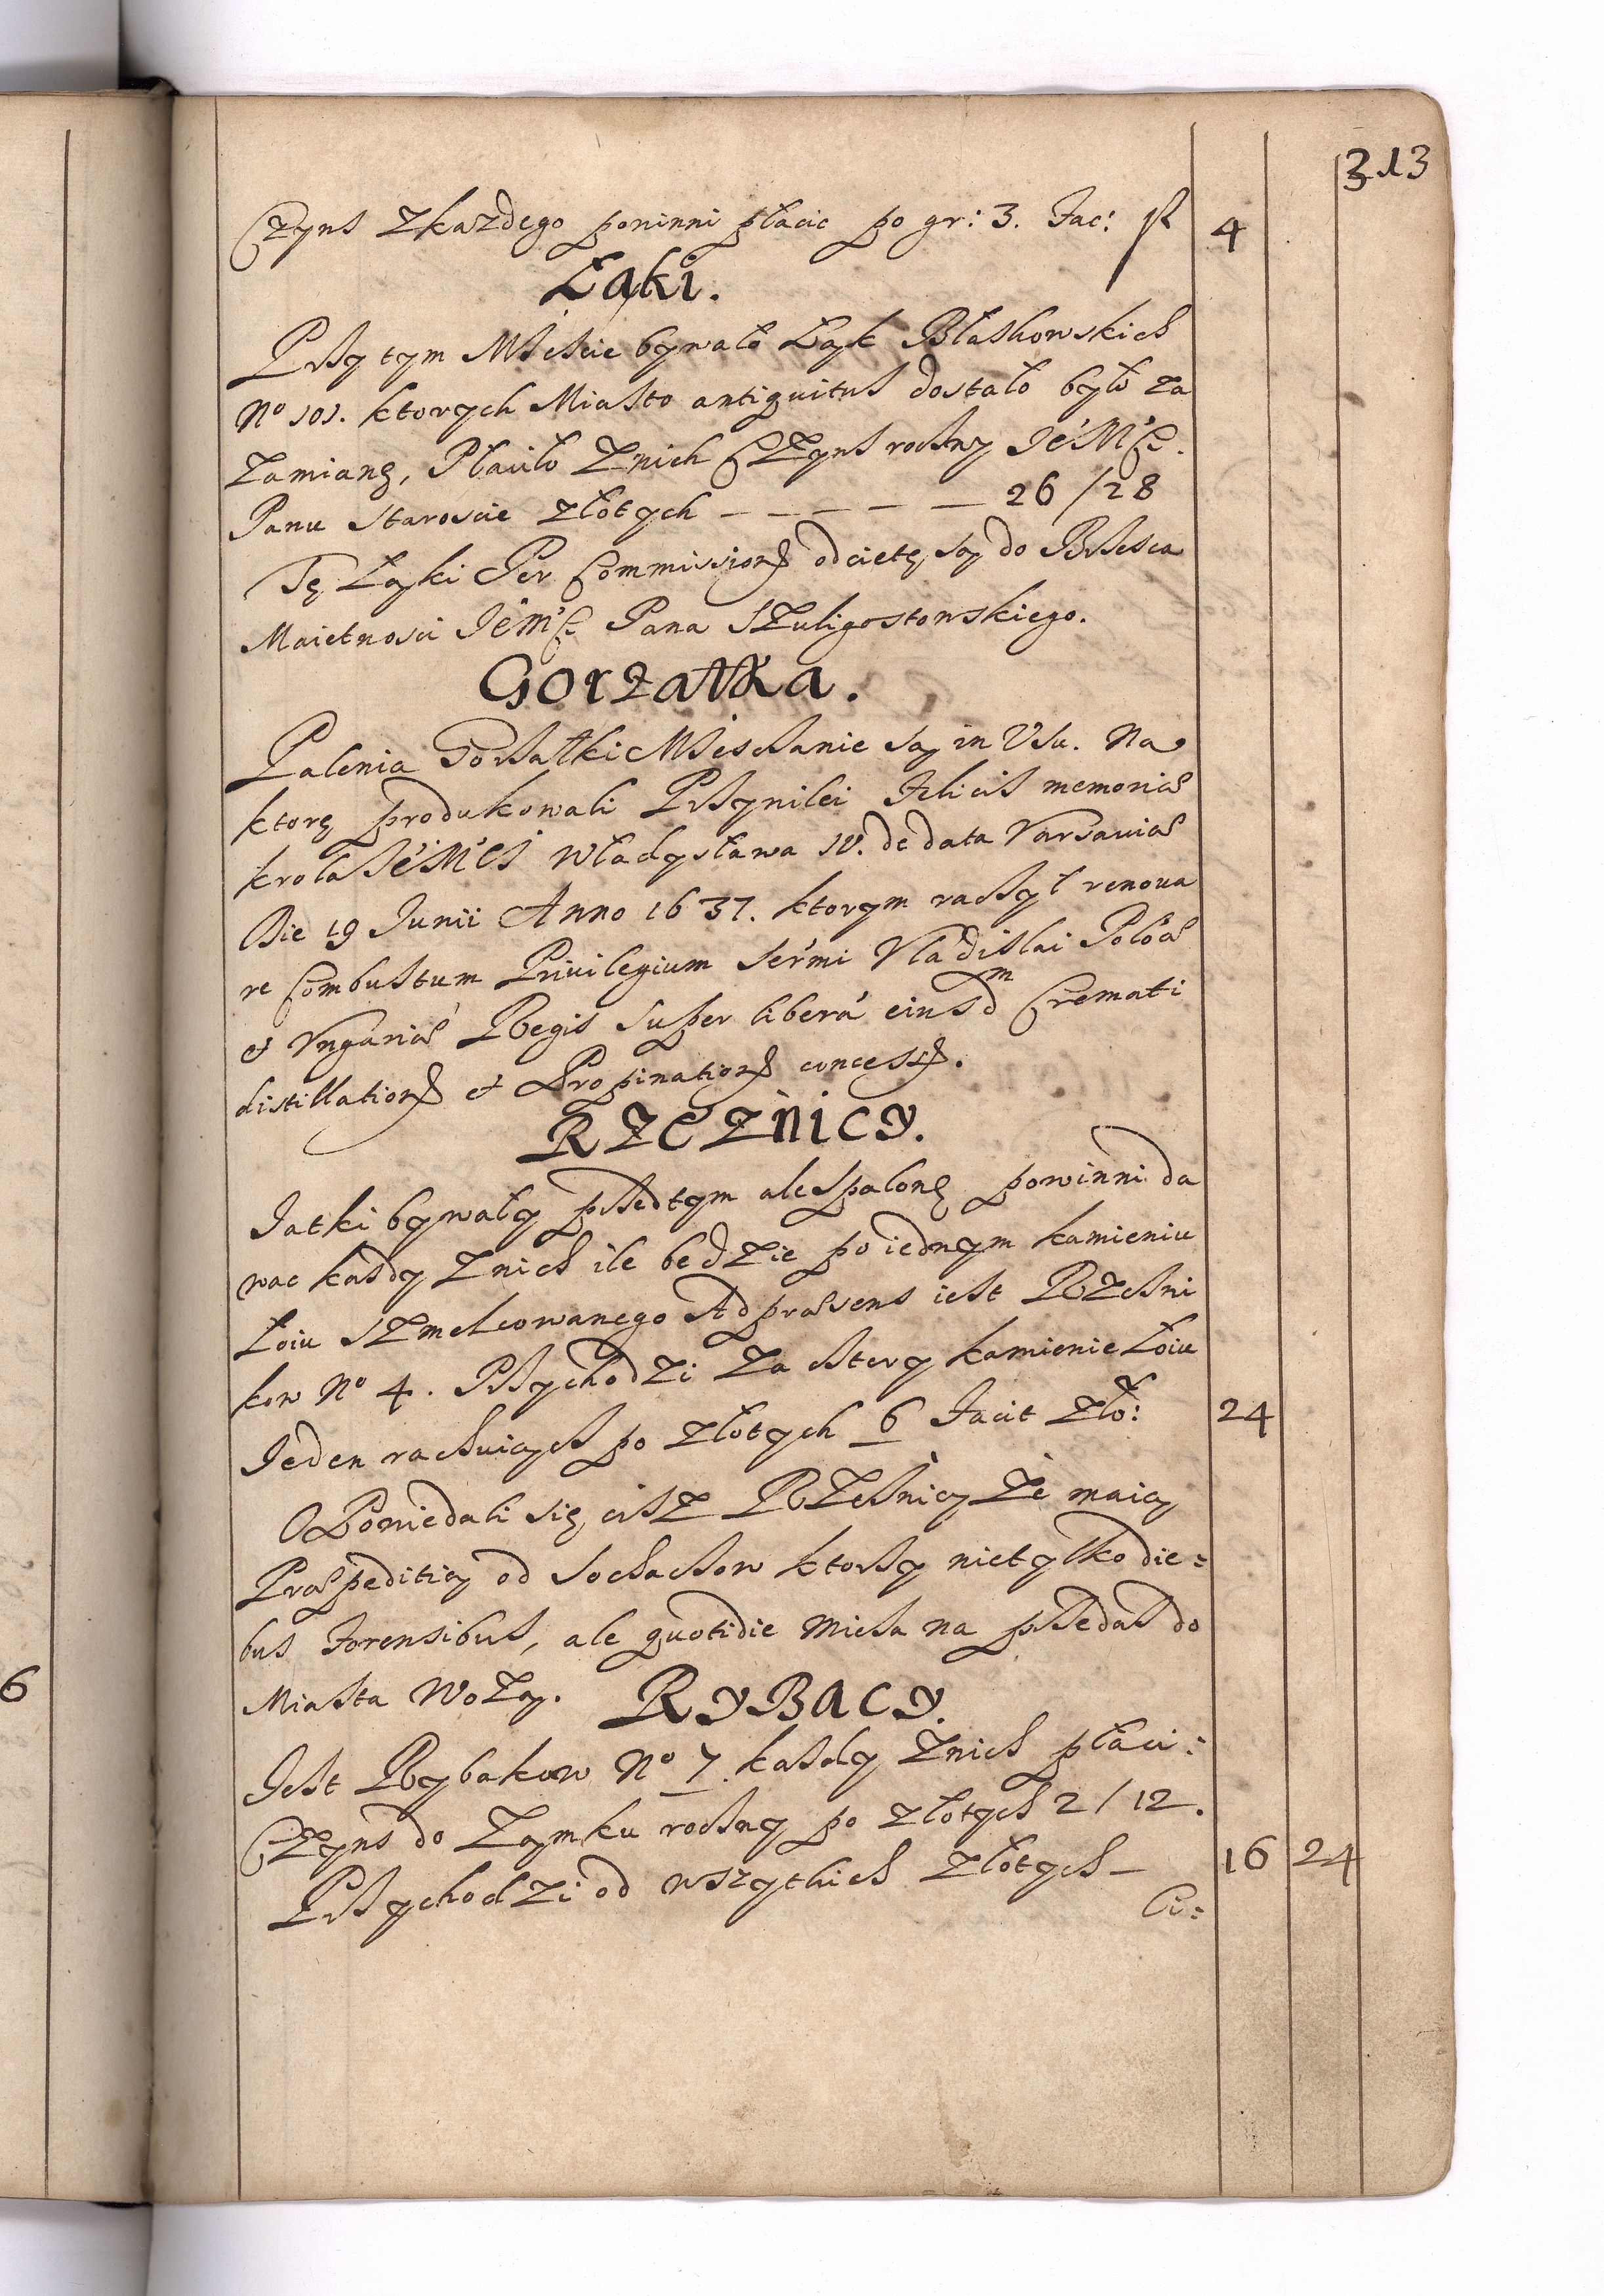 313
Czyns zkazdego powinni płacic po gr: 3. Fac: fl 4
Łąki.
Przy tym Miescie bywało Łąk Błaskowskich
No 101. ktorych Miasto antiquitus dostało było za
zamianę, Płaciło znich Czyns roczny JeMci.
Panu Staroscie złotych — — — — — — 26/28
Tę Łąki Per Commissionem odciętę są do Brzesca
Maietnosci JeMci Pana Szuligostowskiego.
Gorzałka.
Palenia Gorzałki Miesczanie są in Usu. Na
ktorę produkowali Przywilei Felicis memoriae
krola JeMCi Władysława IV. de data Varsaviae
Die 19 Junii Anno 1637. ktorym raczył renova
re Combustum Privilegium Sermi Vladislai Poloae
et Ungariae Regis super liberá eiusdm Cremati
distillationem et Propinationem concessum.
Rzeznicy.
Jatki bywały przedtym ale spalonę powinni da
wac kazdy znich ile bedzie po iednym kamieniu
Łoiu szmelcowanego Ad praesens iest Rzezni
kow No 4. Przychodzi za cztery kamienie Łoiu
Jeden rachuiąch po złotych 6 Facit zło: 24
Opowiedali się ciż Rzeznicy że maią
Praepeditią od Sochaczow ktorzy nietylko die:
bus Forensibus, ale quotidie miesa na przedaż do
Miasta wożą.
Rybacy.
Jest Rybakow No 7. kazdy znich płaci:
Czyns do Zamku roczny po złotych 2/12.
Przychodzi od wszytkich złotych — 16 24
Ci:
6